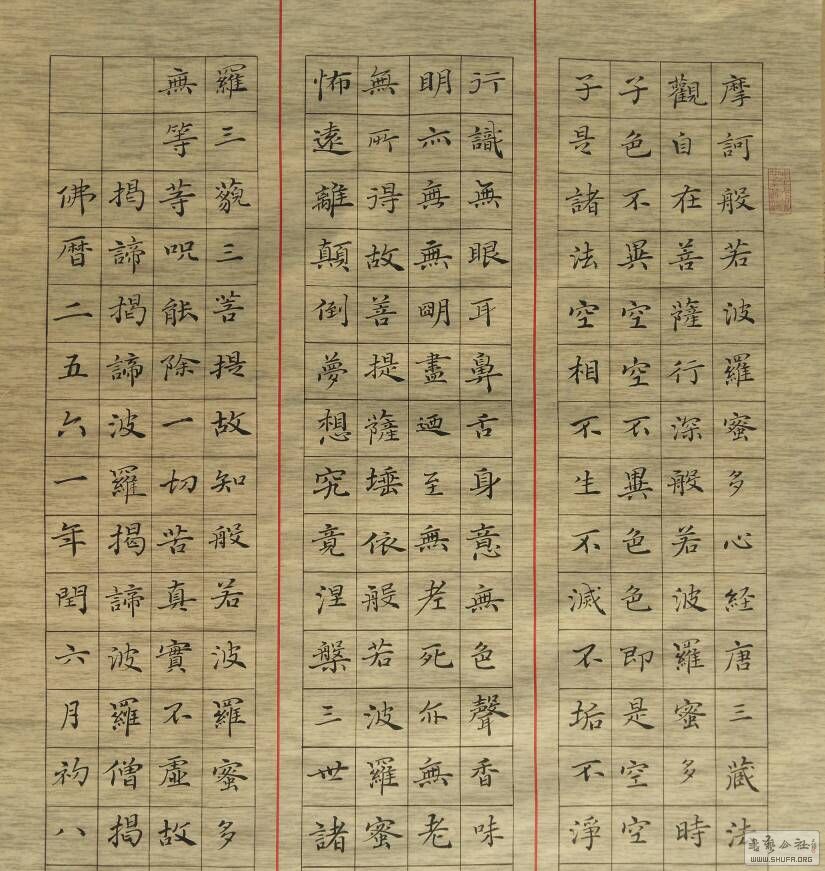 摩訶般若波羅蜜多心経唐三藏法
觀自在菩薩行深般若波羅蜜多時
子色不異空空不異色色即是空空
子是諸法空相不生不滅不垢不淨
行識無眼耳鼻舌身意無色聲香味
明亦無無明盡迺至無老死亦無老
無所得故菩提薩埵依般若波羅蜜
怖遠離顛倒夢想究竟涅槃三世諸
羅三藐三菩提故知般若波羅蜜多
無等等呪能除一切苦真實不虛故
揭諦揭諦波羅揭諦波羅僧揭
佛暦二五六一年閏六月初八
書藝公社
WWW.SHUFA.ORG